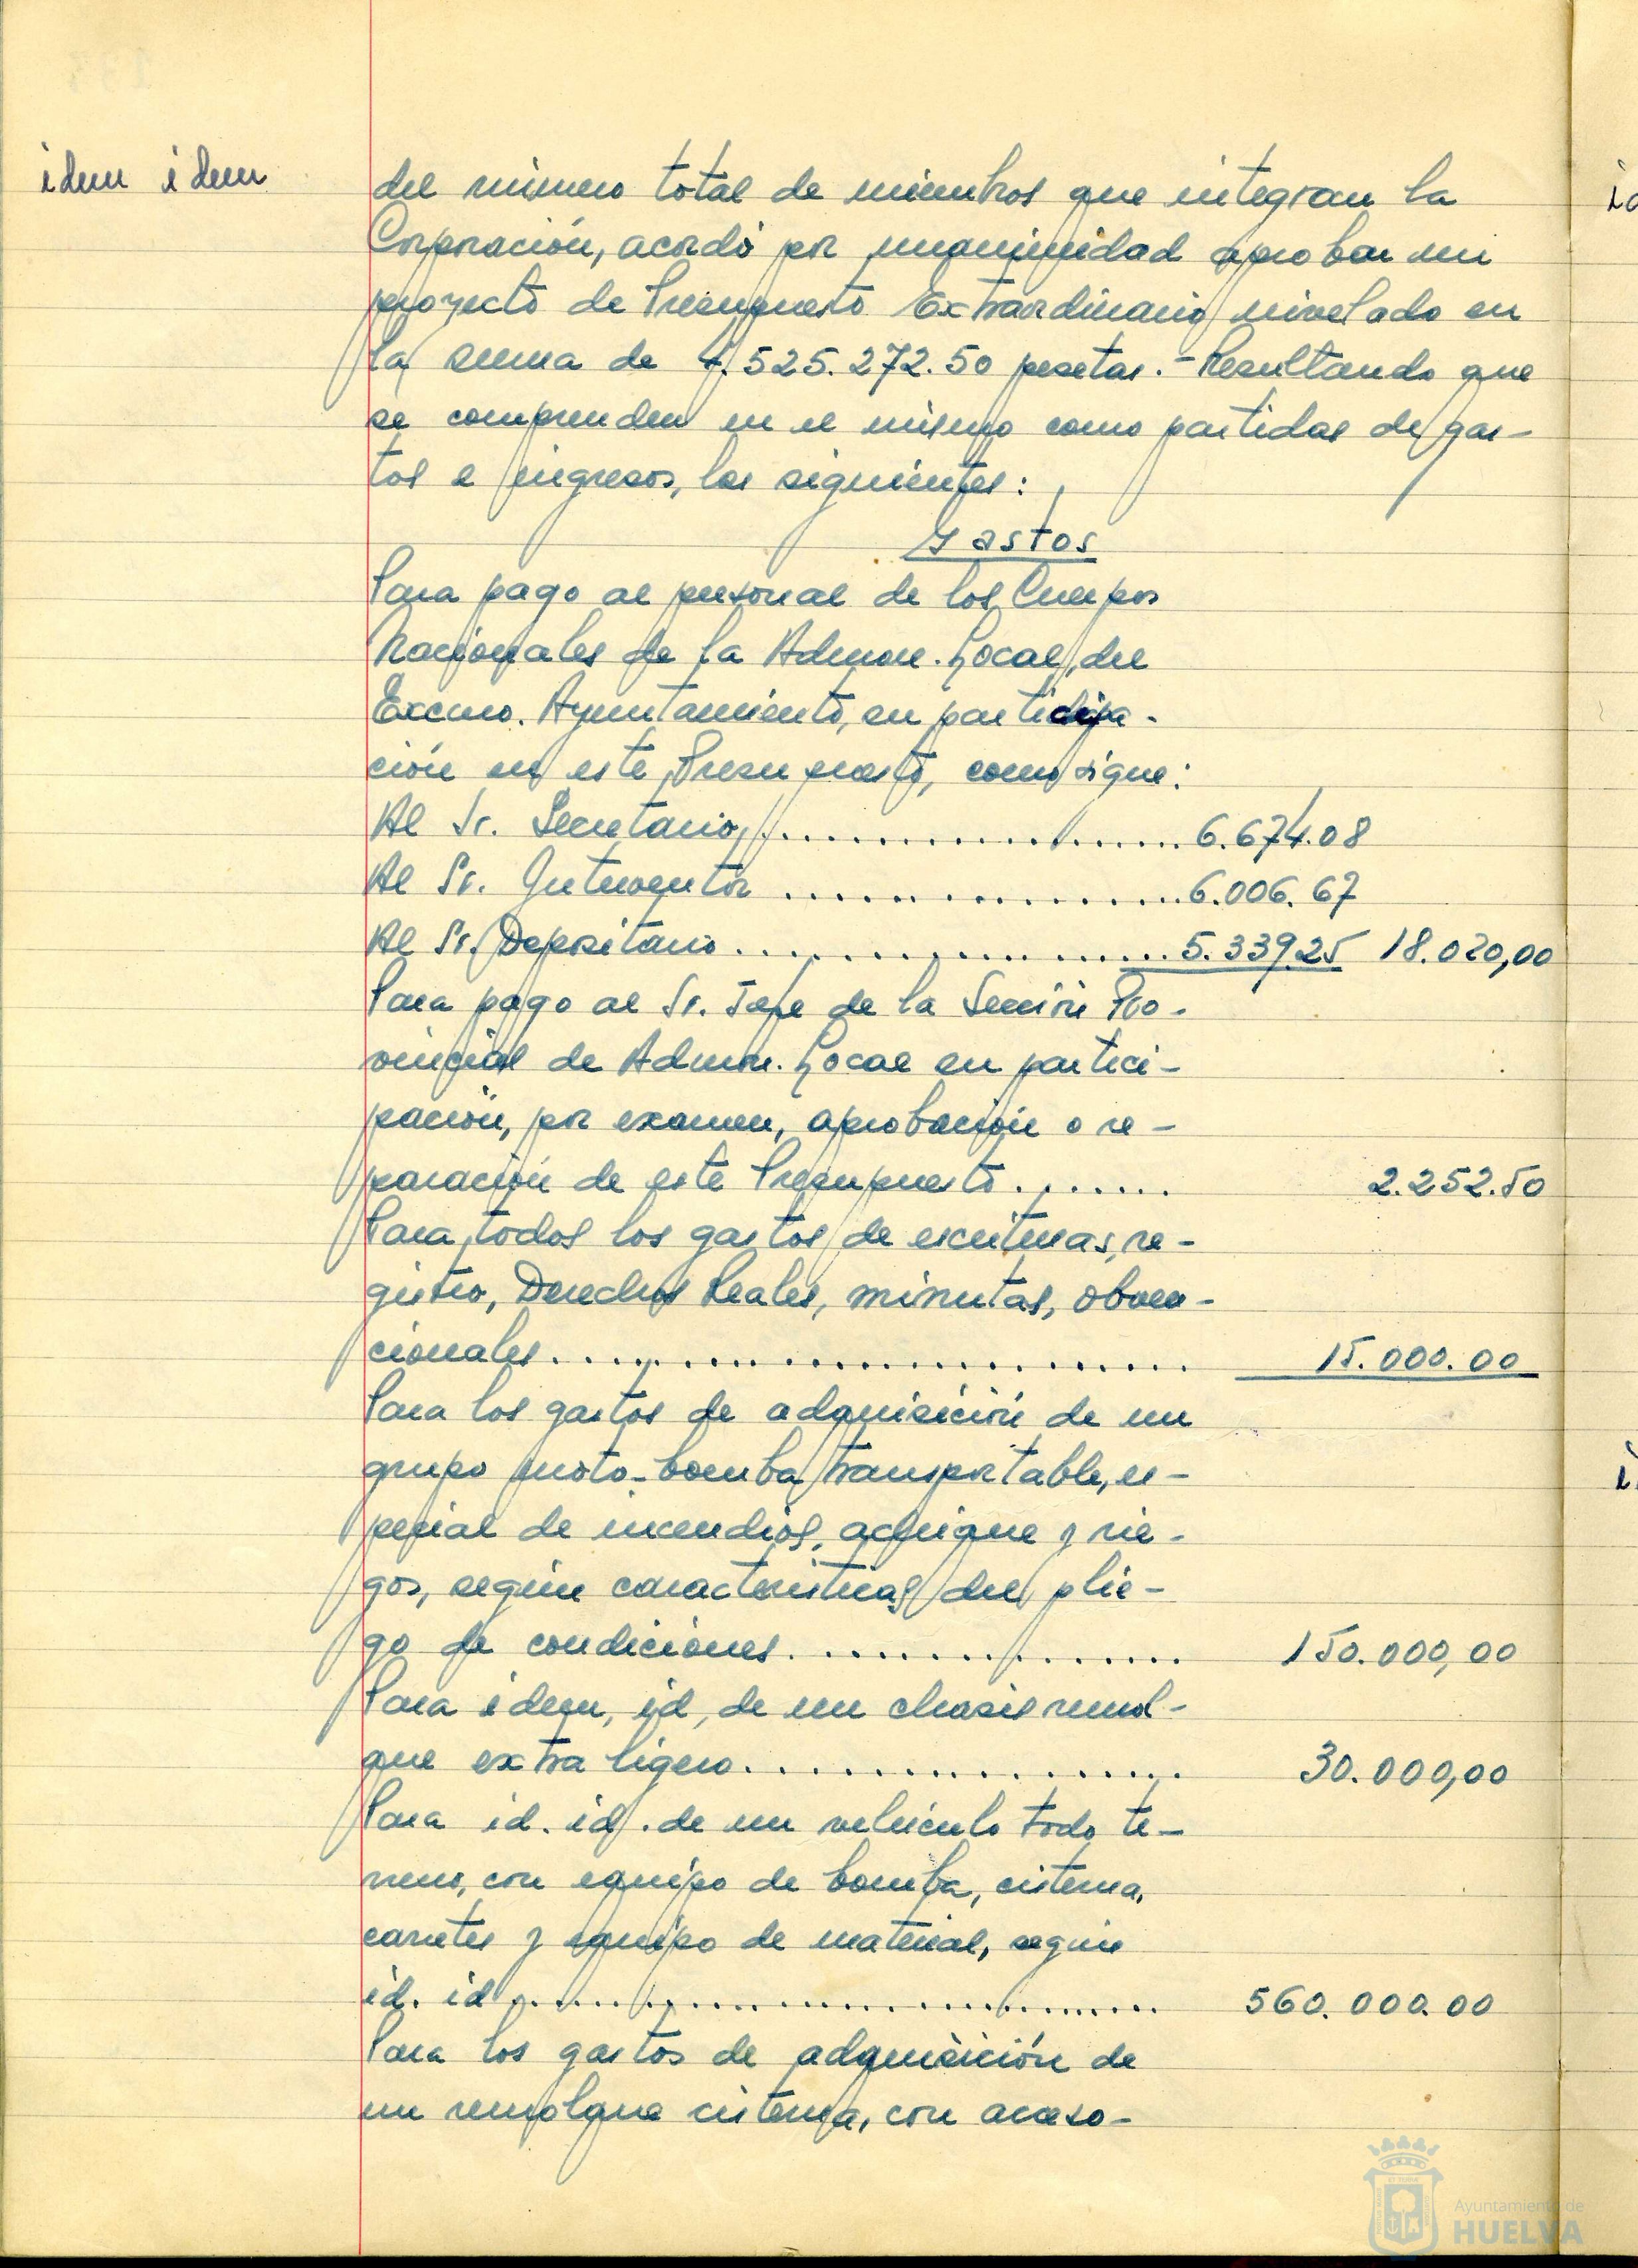 idem idem
del número total de miembros que integran la
Corporación, acordó por unanimidad aprobar un
proyecto de Presupuesto Extraordinario nivelado en
la suma de 4.525.272.50 pesetas.- Resultando que
se comprenden en el mismo como partidas de gas-
tos e ingresos, las siguientes:
Gastos
Para pago al personal de los Cuerpos
Nacionales de la Admon. Local, del
Excmo. Ayuntamiento, en participa-
ción en este Presupuesto, como sigue:
Al Sr. Secretario, .................. 6.674.08
Al Sr. Interventor .................. 6.006.67
Al Sr. Depositario .................. 5.339.25 18.020,00
Para pago al Sr. Jefe de la Sección Pro-
vincial de Admon. Local en partici-
pación, por examen, aprobación o re-
paración de este Presupuesto ........ 2.252.50
Para todos los gastos de escrituras, re-
gistro, Derechos Reales, minutas, obven-
cionales .......................... 15.000.00
Para los gastos de adquisición de un
grupo moto-bomba transportable, es-
pecial de incendios, achique y rie-
gos, según características del plie-
go de condiciones ................ 150.000,00
Para idem, id, de un chasis remol-
que extra ligero .................. 30.000,00
Para id. id. de un vehículo todo te-
rreno, con equipo de bomba, cisterna,
carretes y equipo de material, según
id. id ............................ 560.000.00
Para los gastos de adquisición de
un remolque cisterna, con acceso-
Ayuntamiento de
HUELVA